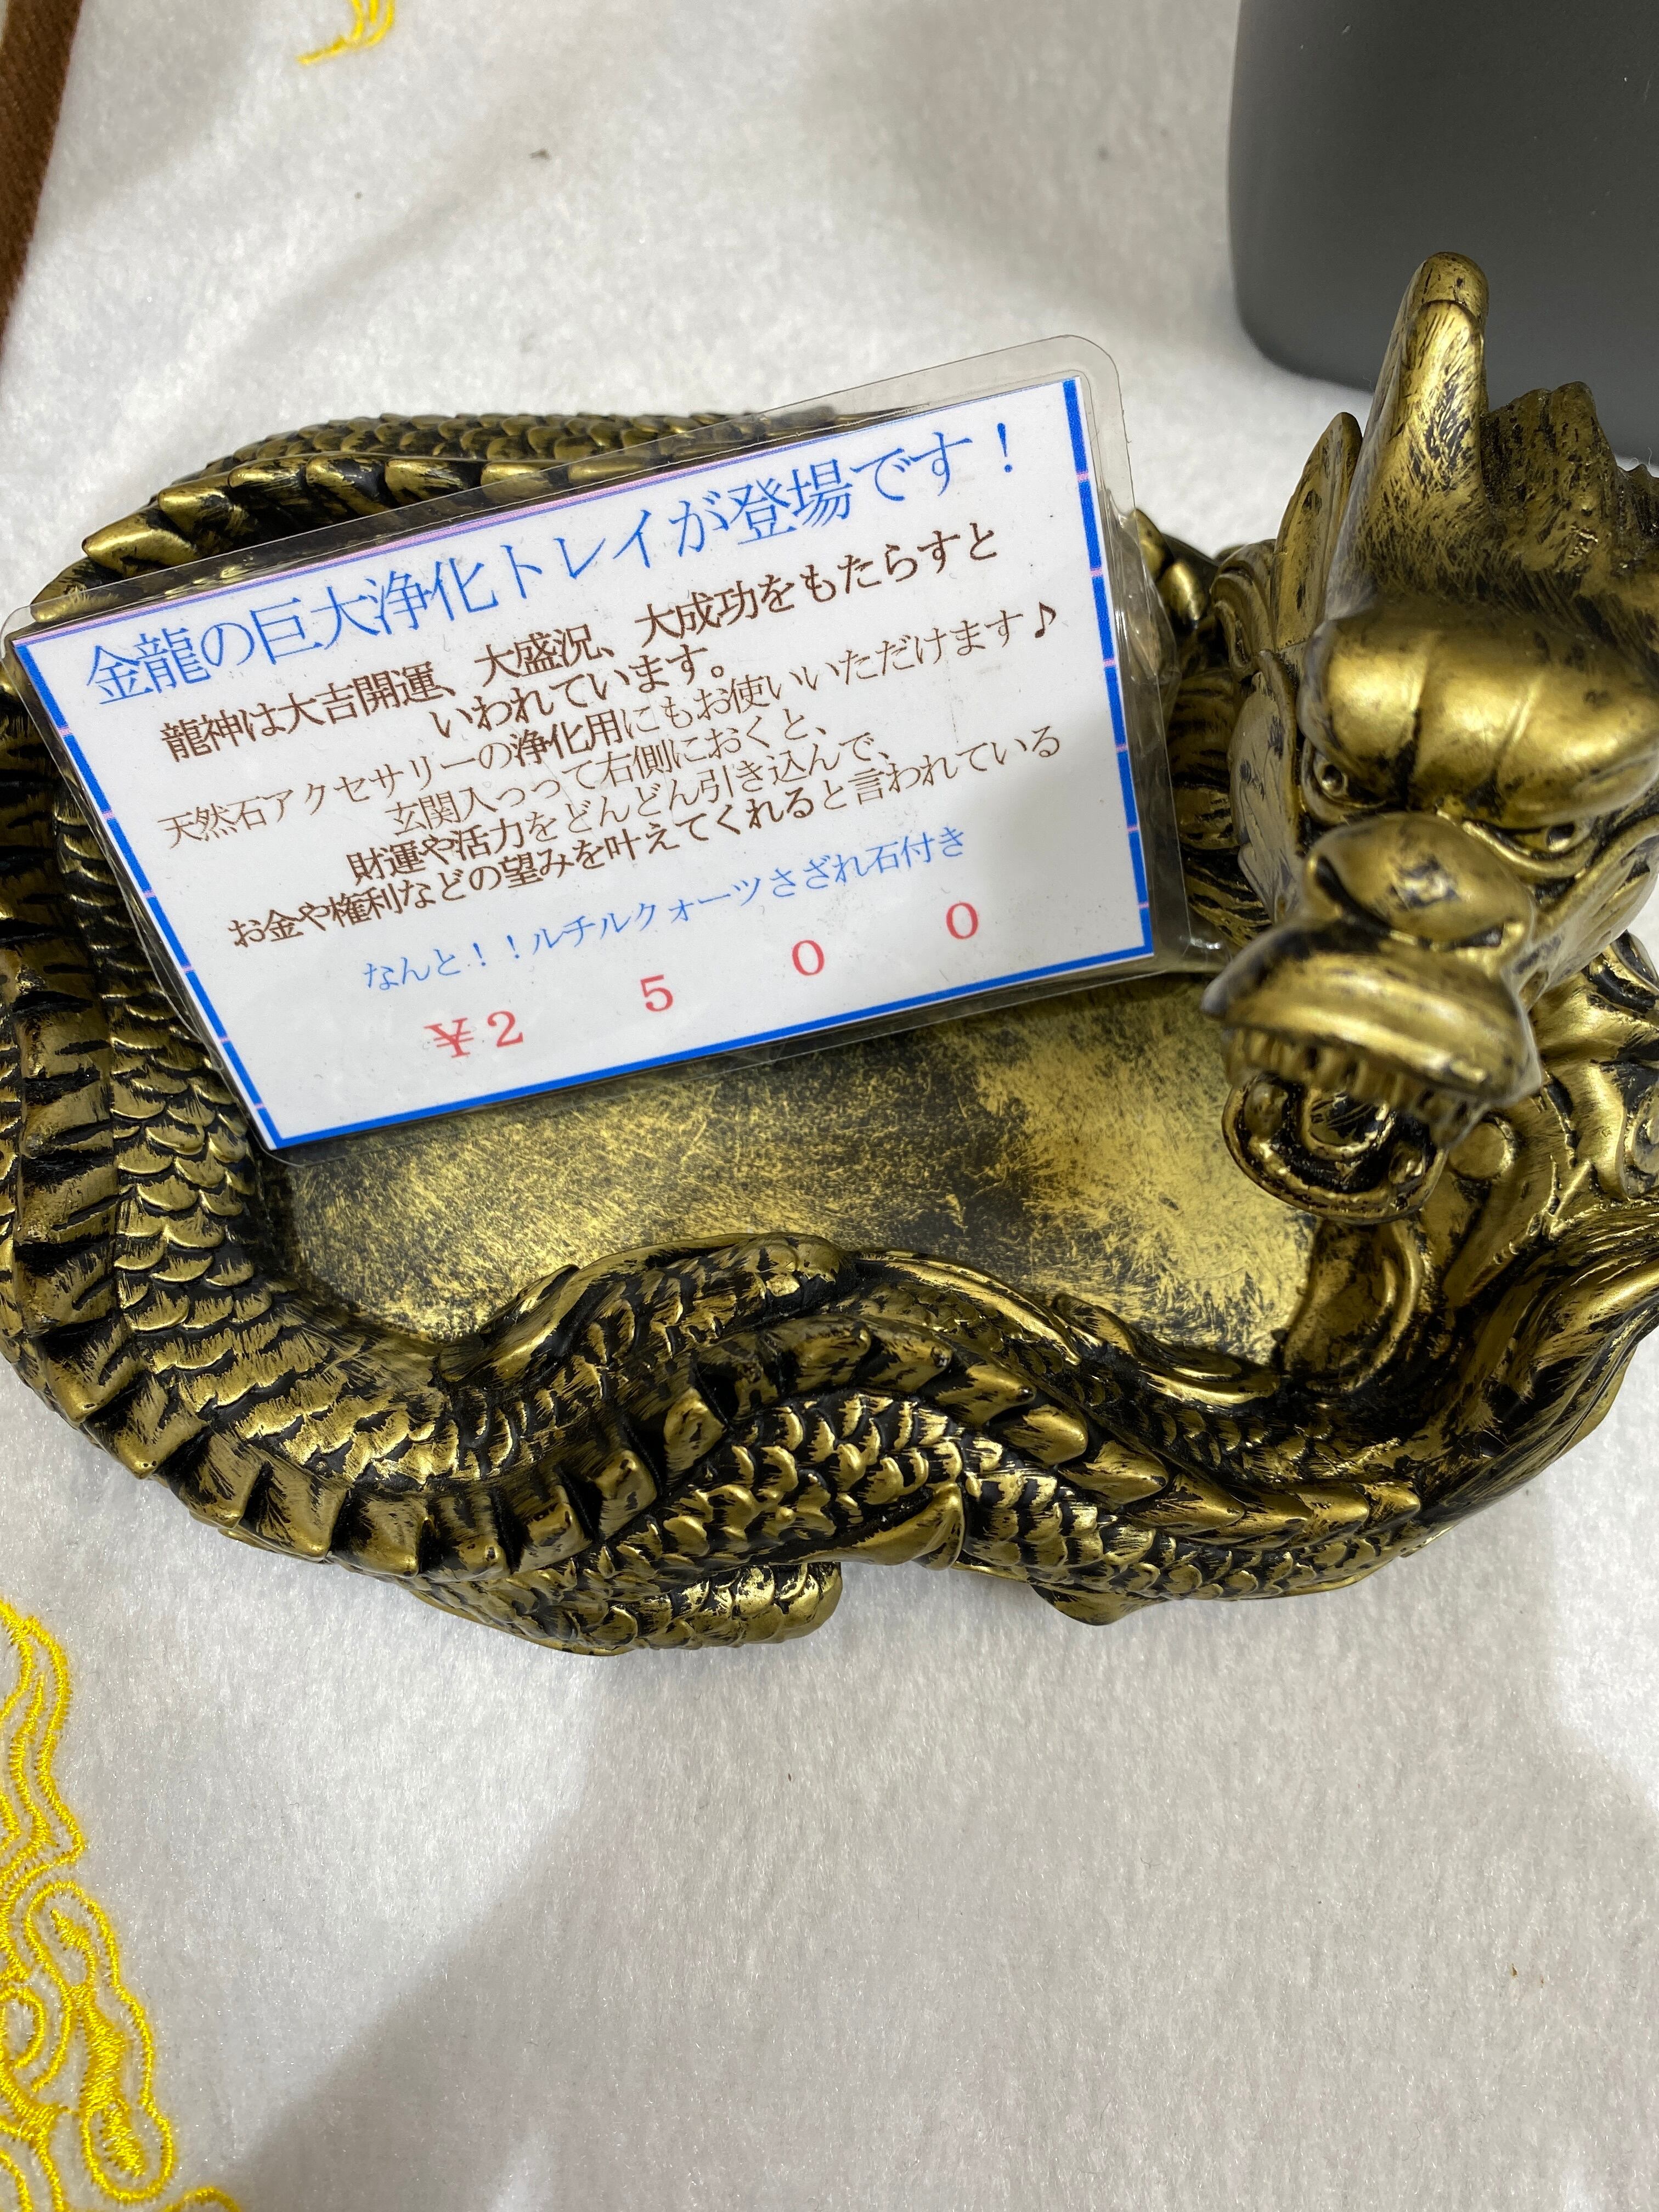 金龍の巨大浄化トレイが登場です！
龍神は大吉開運、大盛況、大成功をもたらすと
いわれています。
天然石アクセサリーの浄化用にもお使いいただけます♪
玄関入っって右側におくと、
財運や活力をどんどん引き込んで、
お金や権利などの望みを叶えてくれると言われている
なんと！！ルチルクォーツさざれ石付き
￥2 5 0 0